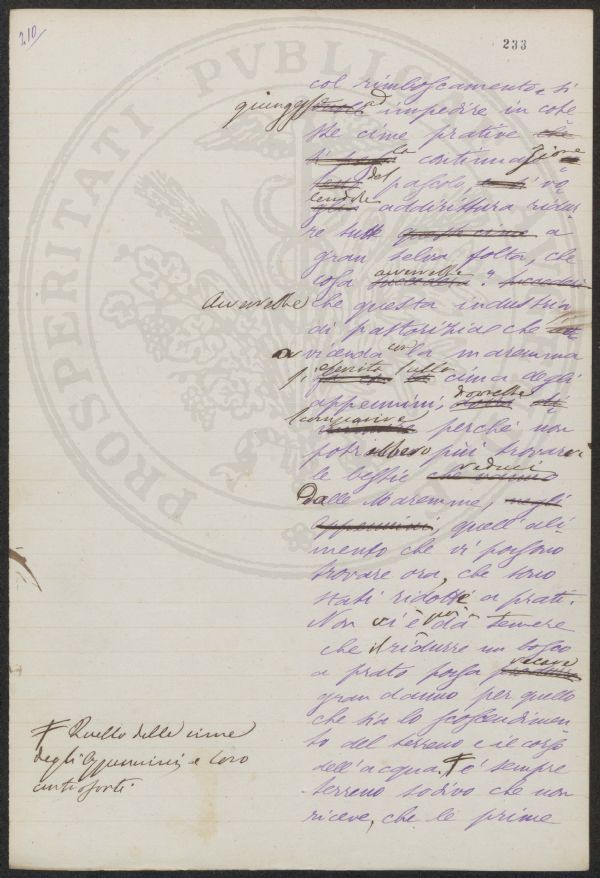 210
233
PROSPERITATI PUBLICAE
col rimboscamento, si
giungesse ad impedire in cote
ste cime prative
la continuazione
del pascolo, vo
lendole addirittura ridur
re tutte a
gran selva folta, che
cosa avverrebbe?
Avverrebbe che questa industria
di pastorizia che
a vicenda con la maremma
s'esercita sulla cima degli
appennini, dovrebbe
perché non
potrebbero più trovarvi
le bestie reduci
dalle Maremme,
appennini, quell'ali
mento che vi possono
trovare ora, che sono
stati ridotte a prati.
Non vi è poi da temere
che il ridurre un bosco
a prato possa recare
gran danno per quello
che sia lo scoscendimen
to del terreno e il corso
dell'acqua. è sempre
terreno sodivo che non
riceve, che le prime
Quello delle cime
degli Appennini e loro
contrafforti.